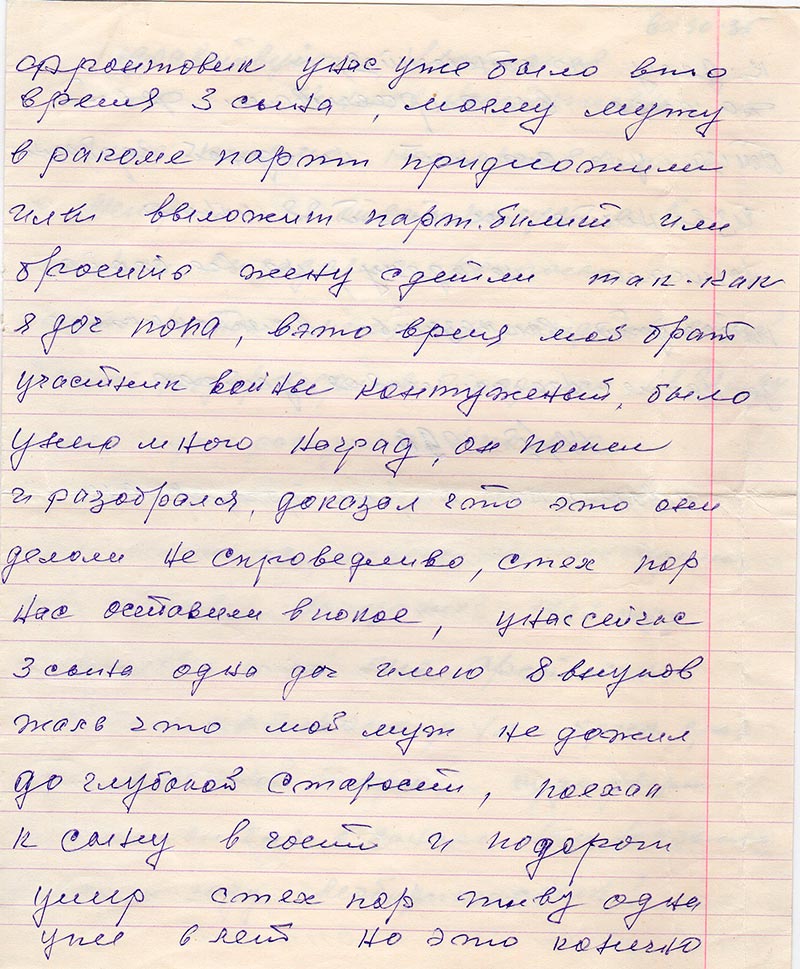 фронтовик унас уже было вто
время 3 сына, моему мужу
в ракоме партти придложили
или выложит парт.билит или
бросить жену сдетми так-как
я доч попа, вэто время мой брат
участник войны контуженый, было
унего много наград, он пошел
и разобрался, доказал что это они
делоли не справедливо, стех пор
нас оставили впокое, унассейчас
3 сына одна доч имею 8 внуков
жаль что мой муж не дожил
до глубокой старости, поехал
к сыну в гости и подорот
умир стех пор живу одна
уже лет но это конечно